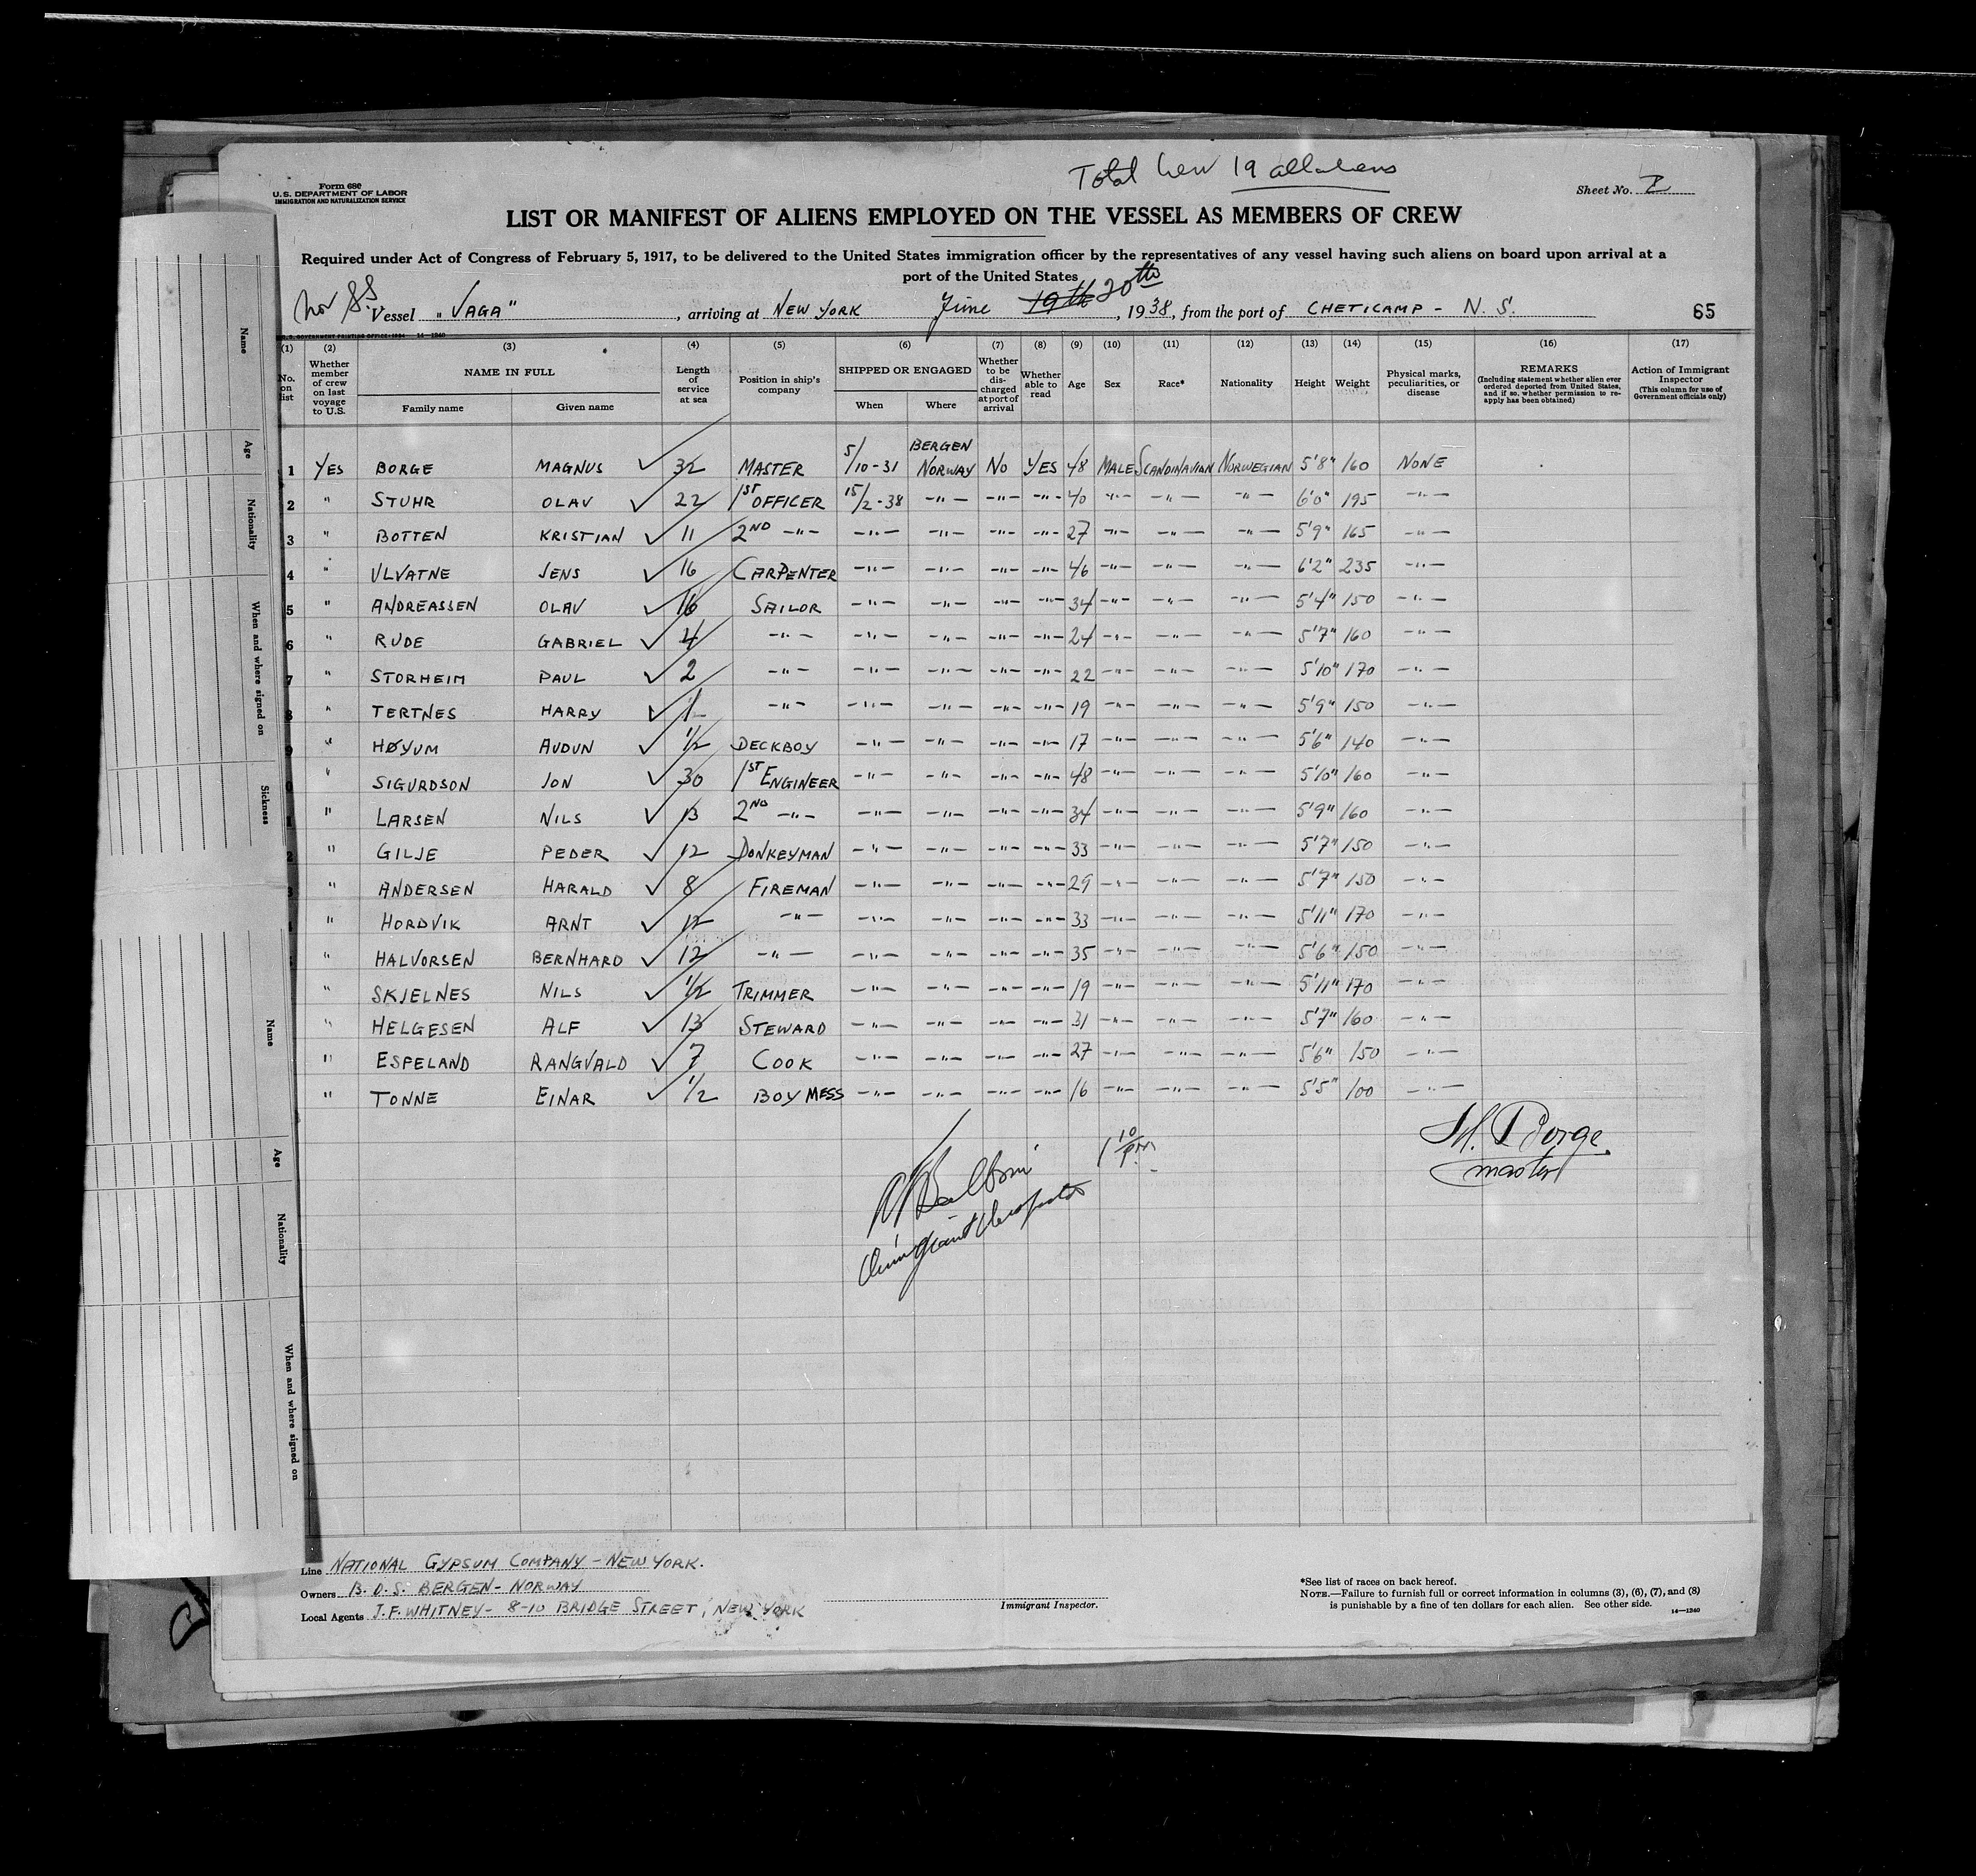 Total Crew 19 all aliens
Form 680
U.S. DEPARTMENT OF LABOR
IMMIGRATION AND NATURALIZATION SERVICE
Sheet No. 2
LIST OR MANIFEST OF ALIENS EMPLOYED ON THE VESSEL AS MEMBERS OF CREW
Required under Act of Congress of February 5, 1917, to be delivered to the United States immigration officer by the representatives of any vessel having such aliens on board upon arrival at a
port of the United States
Nor SS. Vessel "VAGA", arriving at NEW YORK June 19th 20th, 1938, from the port of CHETICAMP - N. S.
65
U.S. GOVERNMENT PRINTING OFFICE: 1934 14—1240
(1) (2) (3) (4) (5) (6) (7) (8) (9) (10) (11) (12) (13) (14) (15) (16) (17)
No. on list
Whether member of crew on last voyage to U.S.
NAME IN FULL
Family name
Given name
Length of service at sea
Position in ship's company
SHIPPED OR ENGAGED
When
Where
Whether to be discharged at port of arrival
Whether able to read
Age
Sex
Race*
Nationality
Height
Weight
Physical marks, peculiarities, or disease
REMARKS
(Including statement whether alien ever ordered deported from United States, and if so, whether permission to reapply has been obtained)
Action of Immigrant Inspector
(This column for use of Government officials only)
1 YES BORGE MAGNUS ✓ 32 MASTER 5/10-31 BERGEN NORWAY NO YES 48 MALE SCANDINAVIAN NORWEGIAN 5'8" 160 NONE
2 " STUHR OLAV ✓ 22 1ST OFFICER 15/2-38 -"- -"- -"- 40 -"- -"- -"- 6'0" 195 -"-
3 " BOTTEN KRISTIAN ✓ 11 2ND -"- -"- -"- -"- -"- 27 -"- -"- -"- 5'9" 165 -"-
4 " ULVATNE JENS ✓ 16 CARPENTER -"- -"- -"- -"- 46 -"- -"- -"- 6'2" 235 -"-
5 " ANDREASSEN OLAV ✓ 16 SAILOR -"- -"- -"- -"- 34 -"- -"- -"- 5'4" 150 -"-
6 " RUDE GABRIEL ✓ 4 -"- -"- -"- -"- -"- 24 -"- -"- -"- 5'7" 160 -"-
7 " STORHEIM PAUL ✓ 2 -"- -"- -"- -"- -"- 22 -"- -"- -"- 5'10" 170 -"-
8 " TERTNES HARRY ✓ 1 -"- -"- -"- -"- -"- 19 -"- -"- -"- 5'9" 150 -"-
9 " HØYUM AUDUN ✓ 1/2 DECKBOY -"- -"- -"- -"- 17 -"- -"- -"- 5'6" 140 -"-
0 " SIGURDSON JON ✓ 30 1ST ENGINEER -"- -"- -"- -"- 48 -"- -"- -"- 5'10" 160 -"-
1 " LARSEN NILS ✓ 13 2ND -"- -"- -"- -"- -"- 34 -"- -"- -"- 5'9" 160 -"-
2 " GILJE PEDER ✓ 12 DONKEYMAN -"- -"- -"- -"- 33 -"- -"- -"- 5'7" 150 -"-
3 " ANDERSEN HARALD ✓ 8 FIREMAN -"- -"- -"- -"- 29 -"- -"- -"- 5'7" 150 -"-
4 " HORDVIK ARNT ✓ 12 -"- -"- -"- -"- -"- 33 -"- -"- -"- 5'11" 170 -"-
" HALVORSEN BERNHARD ✓ 12 -"- -"- -"- -"- -"- 35 -"- -"- -"- 5'6" 150 -"-
" SKJELNES NILS ✓ 1/2 TRIMMER -"- -"- -"- -"- 19 -"- -"- -"- 5'11" 170 -"-
" HELGESEN ALF ✓ 13 STEWARD -"- -"- -"- -"- 31 -"- -"- -"- 5'7" 160 -"-
" ESPELAND RANGVALD ✓ 7 COOK -"- -"- -"- -"- 27 -"- -"- -"- 5'6" 150 -"-
" TONNE EINAR ✓ 1/2 BOY MESS -"- -"- -"- -"- 16 -"- -"- -"- 5'5" 100 -"-
1 10 P.M.
M. Borge.
master
Immigrant Inspector
Line NATIONAL GYPSUM COMPANY - NEW YORK.
Owners B. D. S. BERGEN - NORWAY
Local Agents J.F. WHITNEY - 8-10 BRIDGE STREET, NEW YORK
Immigrant Inspector.
*See list of races on back hereof.
NOTE.—Failure to furnish full or correct information in columns (3), (6), (7), and (8)
is punishable by a fine of ten dollars for each alien. See other side.
14—1240
Name
Age
Nationality
When and where signed on
Sickness
Name
Age
Nationality
When and where signed on